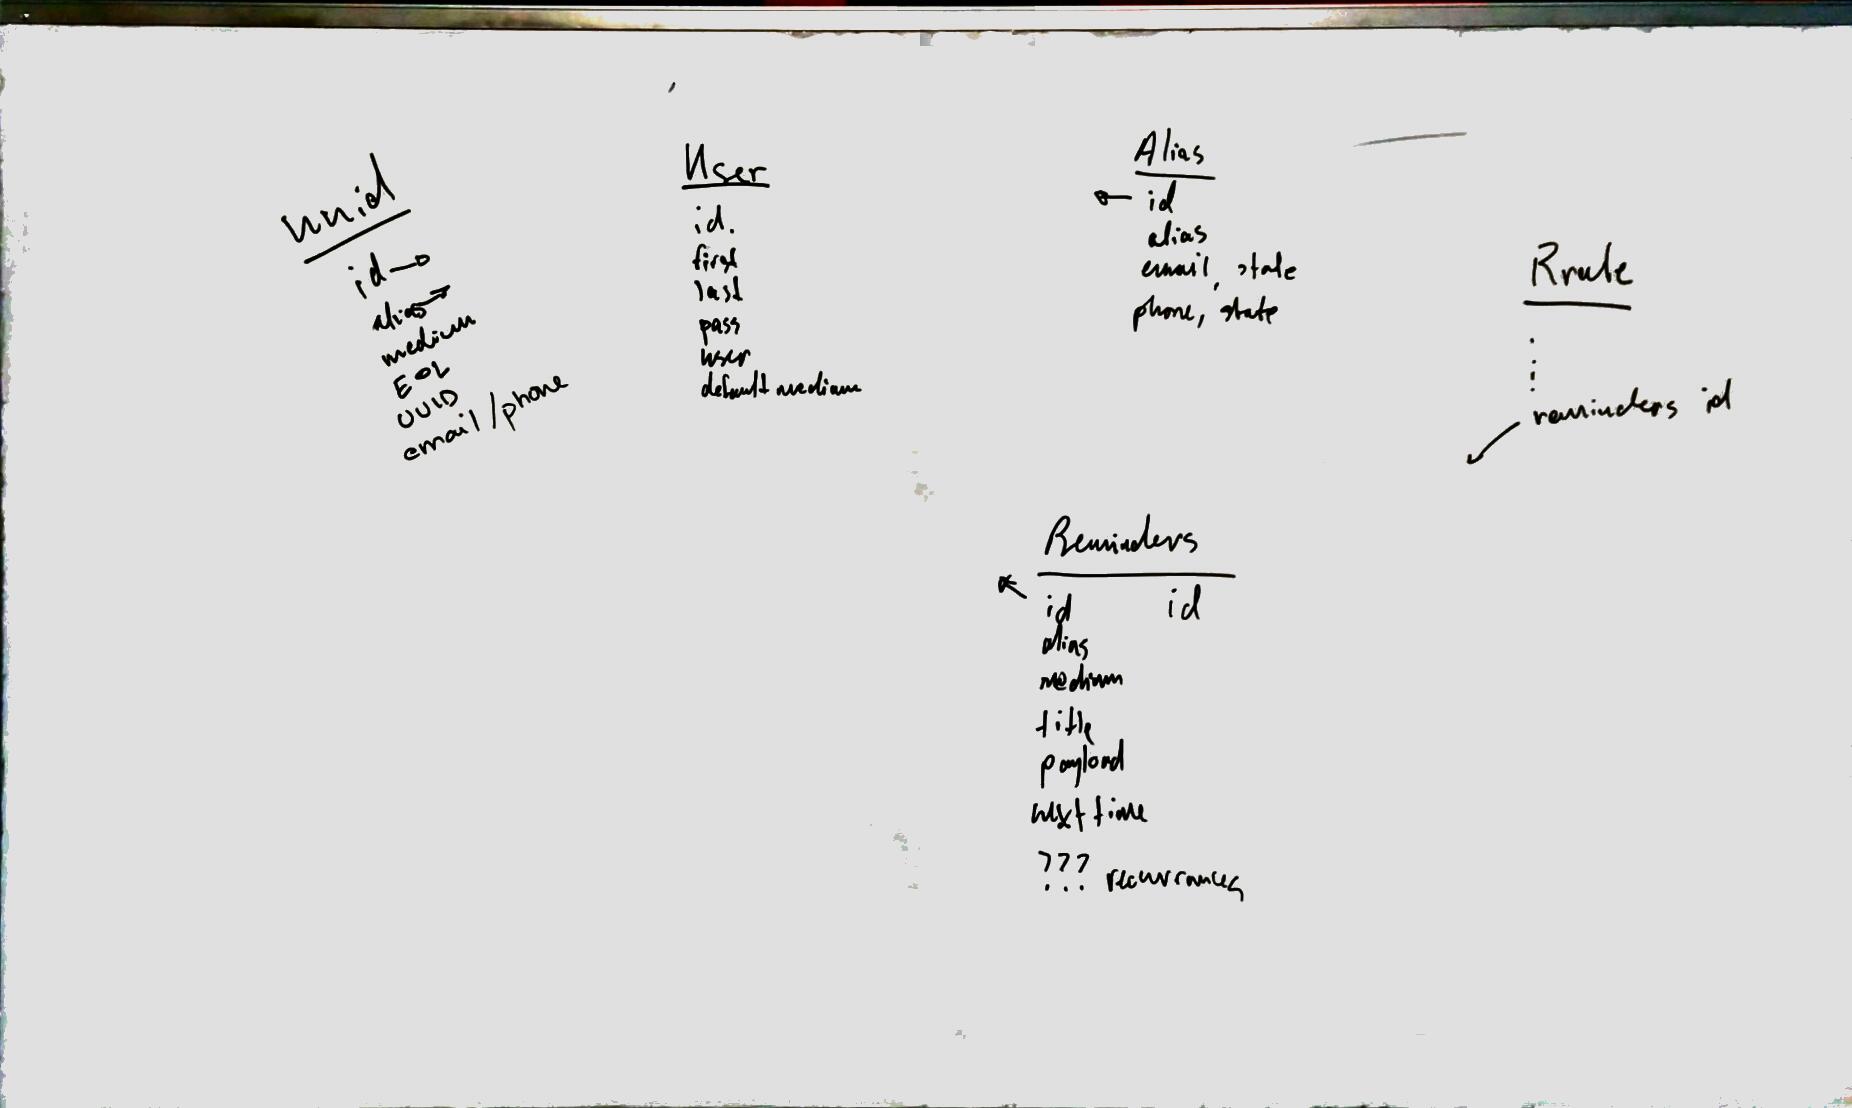 uuid
id
alias
medium
EOL
UUID
email/phone
User
id.
first
last
pass
user
default medium
Alias
id
alias
email, state
phone, state
Rrule
reminders id
Reminders
id id
alias
medium
title
payload
next time
??? recurrances